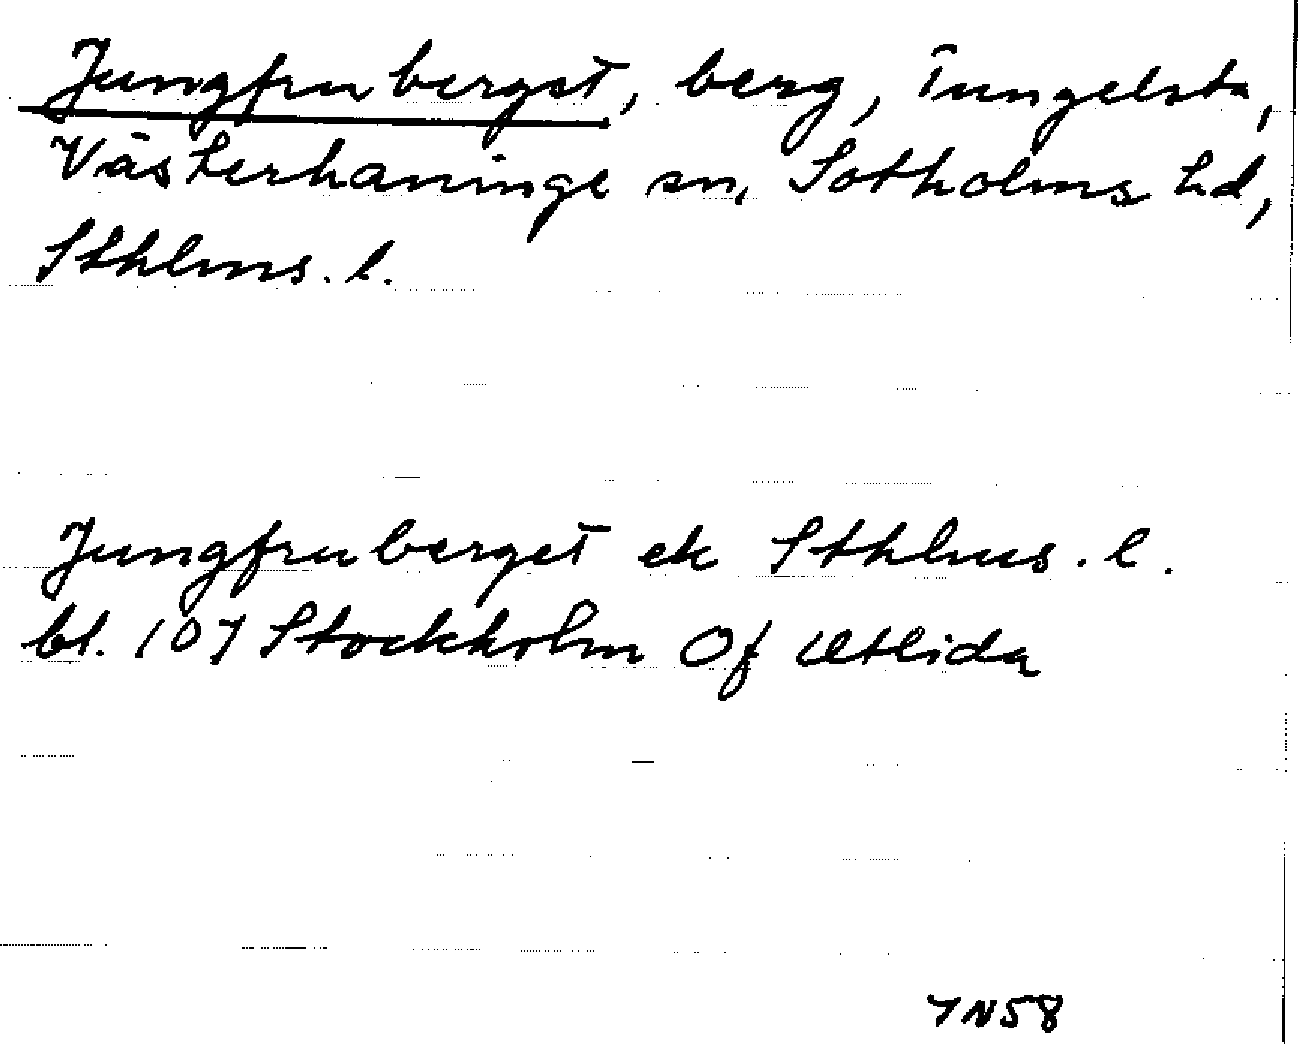 Jungfruberget, berg, Tungelsta,
Västerhaninge sn, Sotholms hd,
Sthlms. l.
Jungfruberget ek Sthlms. l.
bl. 107 Stockholm Of Utlida
7N58